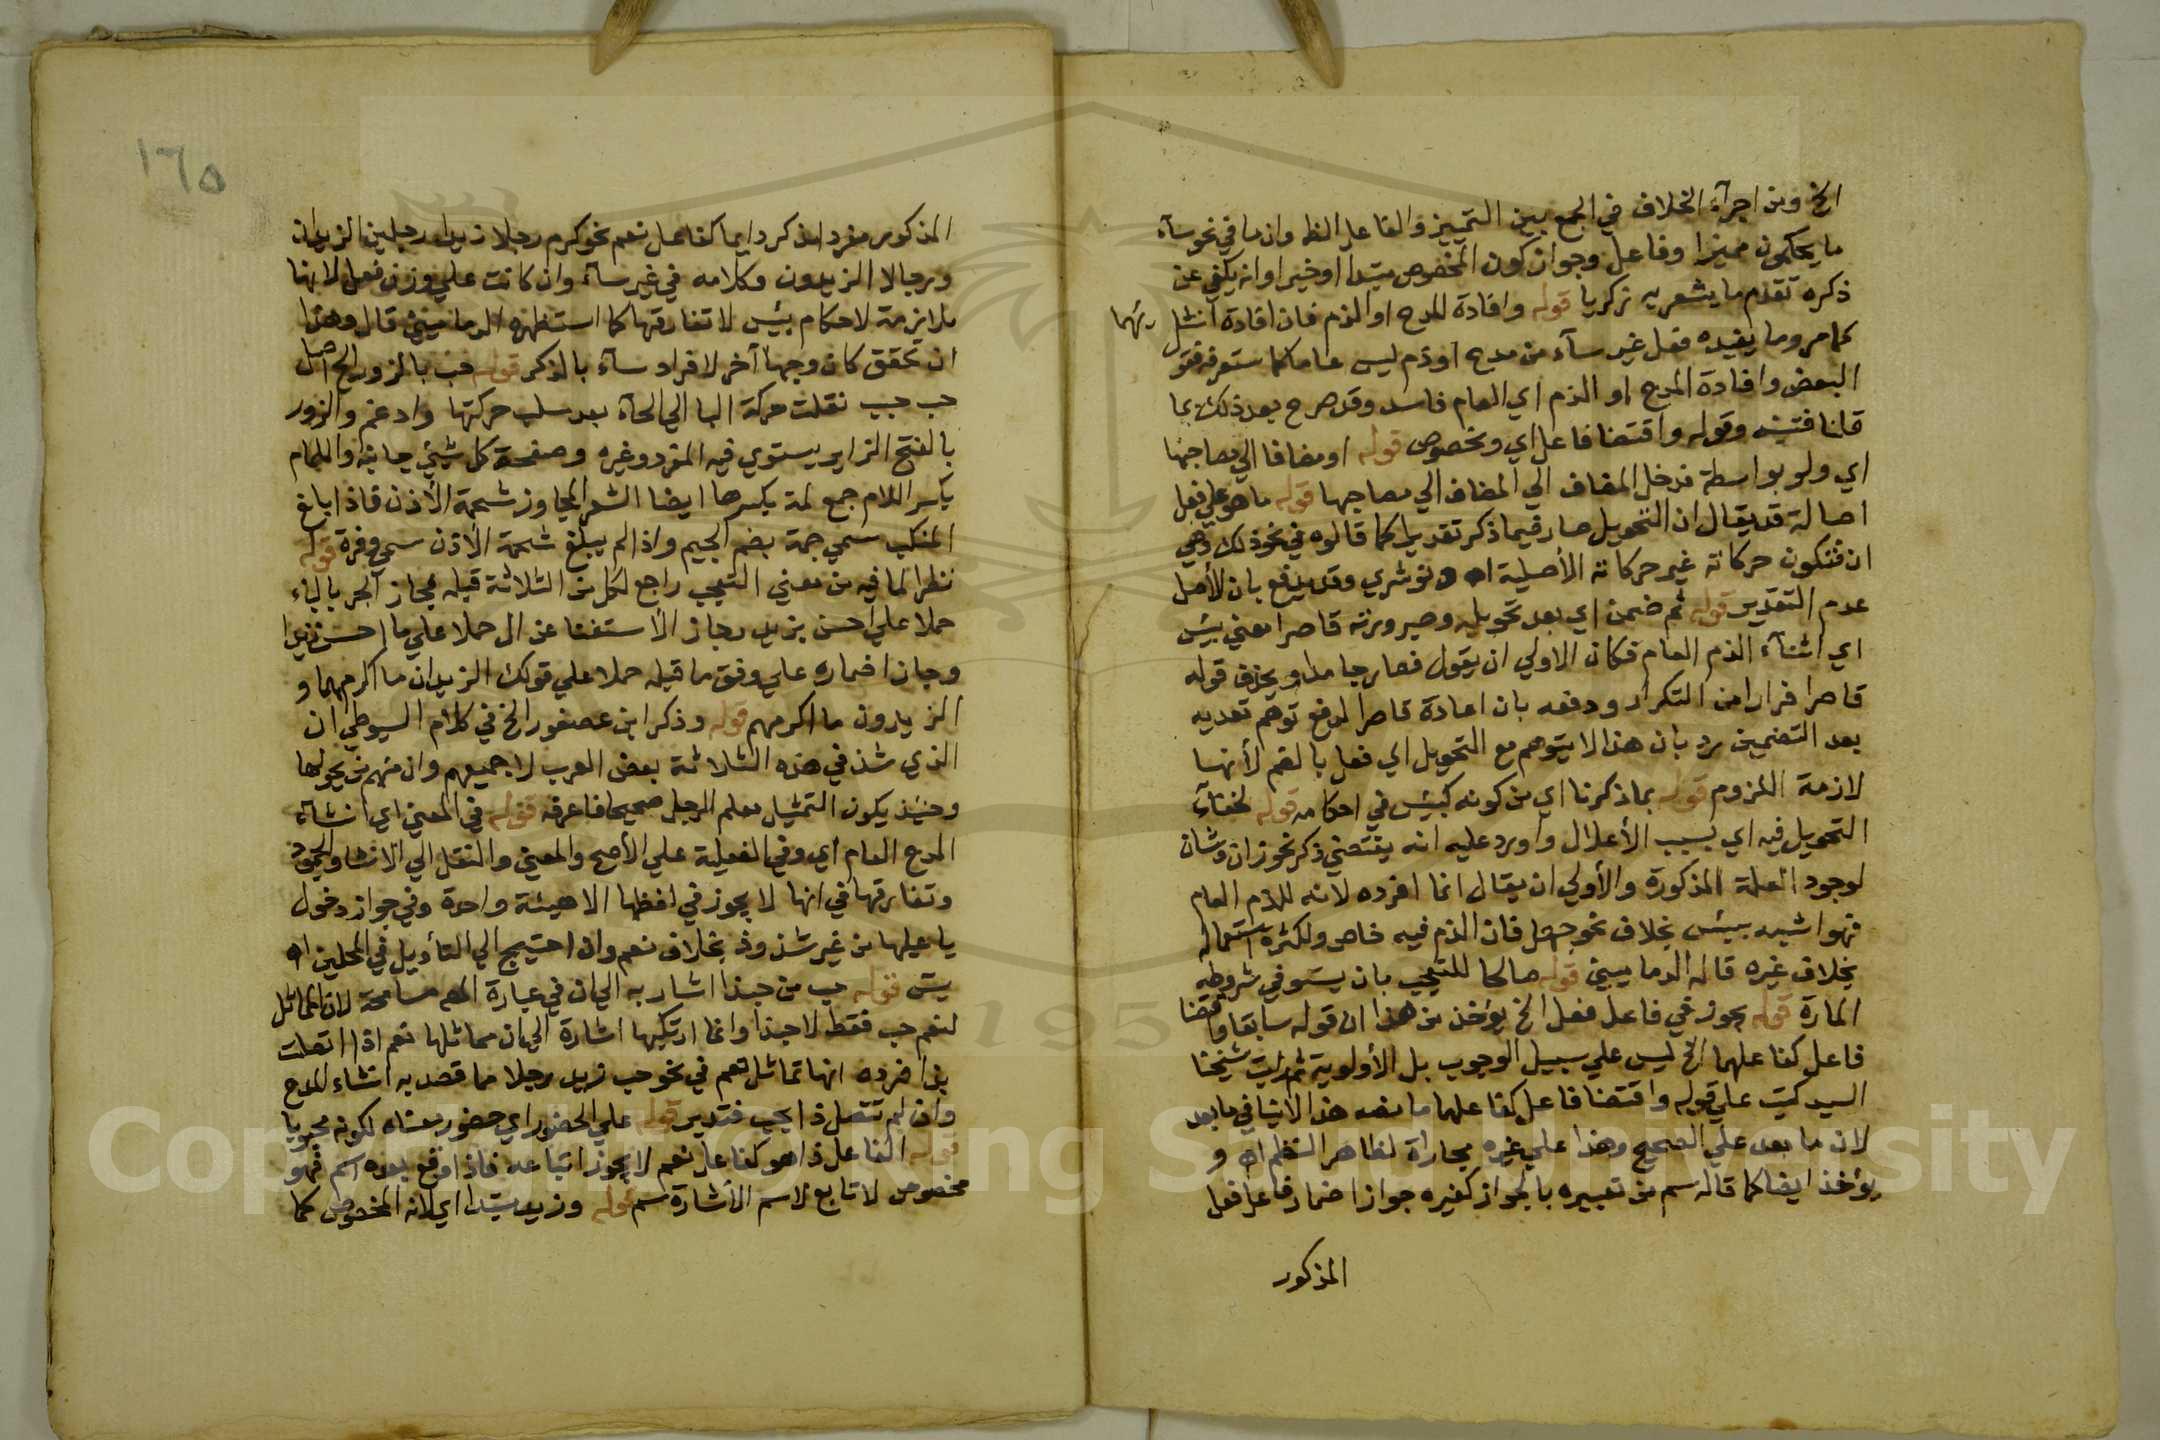 الخ ومن اجرآء الخلاف في الجمع بين التمييز والفاعل الظ وان ما في نحو سآء
ما يحكمون مميزا وفاعل وجواز كون المخصوص مبتدا او خبرا وانه يكفي عن
ذكره تقدم ما يشعر به زكريا قوله وافادة المدح او الذم فان افادة انشا
كما مر وما يفيده فعل غير سآء من مدح او ذم ليس عاما كما ستعرفه فقو
البعض وافادة المدح او الذم اي العام فاسد وقد صرح بعد ذلك بما
قلنا فتنبه وقوله واقتضا فاعل اي ومخصوص قوله او مضافا الي مصاحبها
اي ولو بواسطة فدخل المضاف الي المضاف الي مصاحبها قوله ما هو علي فعل
اصالة قد يقال ان التحويل صار فيما ذكر تقديرا كما قالوه في نحو ذلك وهي
ان فتكون حركاته غير حركاته الأصلية اه نوشري وقد يدفع بان الأصل
عدم التقدير قوله ثم ضمن اي بعد تحويله وصيرورته قاصرا معني بئس
اي انشآء الذم العام فكان الاولي ان يقول فصار جامدا ويحذف قوله
قاصرا فرارا من التكرار ودفعه بان اعادة قاصرا لدفع توهم تعديه
بعد التضمين يرد بان هذا لا يتوهم مع التحويل اي فعل بالضم لأنها
لازمة اللزوم قوله بما ذكرنا اي من كونه كبئس في احكامه قوله لخفآء
التحويل فيه اي بسبب الأعلال واورد عليه انه يقتضي ذكر نحو زان وشان
لوجود العلة المذكورة والأولي ان يقال انما افرده لانه للذم العام
فهو اشبه ببئس بخلاف نحو جهل فان الذم فيه خاص ولكثرة استعماله
بخلاف غيره قاله الدماميني قوله صالحا للتعجب بان يستوفي شروطه
المارة قوله يجوز في فاعل فعل الخ يؤخذ من هذا ان قوله سابقا واقتضا
فاعل كفاعلهما الخ ليس علي سبيل الوجوب بل الأولوية ثم رايت شيخنا
السيد كتب علي قوله واقتضا فاعل كفاعلهما ما نصه هذا لا ينافي ما بعد
لان ما بعد علي الصحيح وهذا علي غيره مجاراة لظاهر النظم اه و
يؤخذ ايضا كما قاله سم من تعبيره بالجواز كغيره جواز اضمار فاعل فعل
المذكور
المذكور مفردا مذكرا دايما كفاعل نعم نحو كرم رجلا زيد او رجلين الزيدان
ورجالا الزيدون وكلامه في غير سآء وان كانت علي وزن فعل لانها
ملازمة لاحكام بئس لا تفارقها كما استظهره الدماميني قال وهذا
ان تحقق كان وجها آخر لافراد سآء بالذكر قوله حب بالزور الخ اصل
حب حبب نقلت حركة البا الي الحآء بعد سلب حركتها وادغم والزور
بالفتح الزاير يستوي فيه المفرد وغيره وصفحة كل شيئ جانبه واللمام
بكسر اللام جمع لمة بكسرها ايضا الشعر المجاوز شحمة الأذن فاذا بلغ
المنكب سمي جمة بضم الجيم واذا لم يبلغ شحمة الأذن سمي وفرة قوله
نظرا لما فيه من معني التعجب راجع لكل من الثلاثة قبله مجاز الجر بالباء
حملا علي احسن بزيد وجاز الأستغنا عن ال حملا علي ما احسن زيدا
وجاز اضماره علي وفق ما قبله حملا علي قولك الزيدان ما اكرمهما و
الزيدون ما اكرمهم قوله وذكر ابن عصفور الخ في كلام السيوطي ان
الذي شذ في هذه الثلاثة بعض العرب لا جميعهم وان منهم من يحولها
وحينئذ يكون التمثيل بعلم الرجل صحيحا فاعرفه قوله في المعني اي انشآء
المدح العام اي وفي الفعلية علي الأصح والمعني والنقل الي الأنشا والجمود
وتفارقها في انها لا يجوز في لفظها الا هيئة واحدة وفي جواز دخول
يا عليها من غير شذوذ بخلاف نعم وان احتيج الي التأويل في المحلين اه
يس قوله حب من حبذا اشار به الي ان في عبارة المص مسامحة لان المماثل
لنعم حب فقط لا حبذا وانما ارتكبها اشارة الي ان مماثلها نعم اذا اتصلت
بذا فرده انها تماثل نعم في نحو حب زيد رجلا مما قصد به انشاء المدح
وان لم تتصل ذا بحب فتدبر قوله علي الحضور اي حضور معناه لكونه محبوبا
قوله الفاعل ذا هو كفاعل نعم لا يجوز اتباعه فاذا وقع بعده اسم فهو
مخصوص لا تابع لاسم الأشارة سم قوله وزيد مبتدا اي لانه المخصوص كما
١٦٥